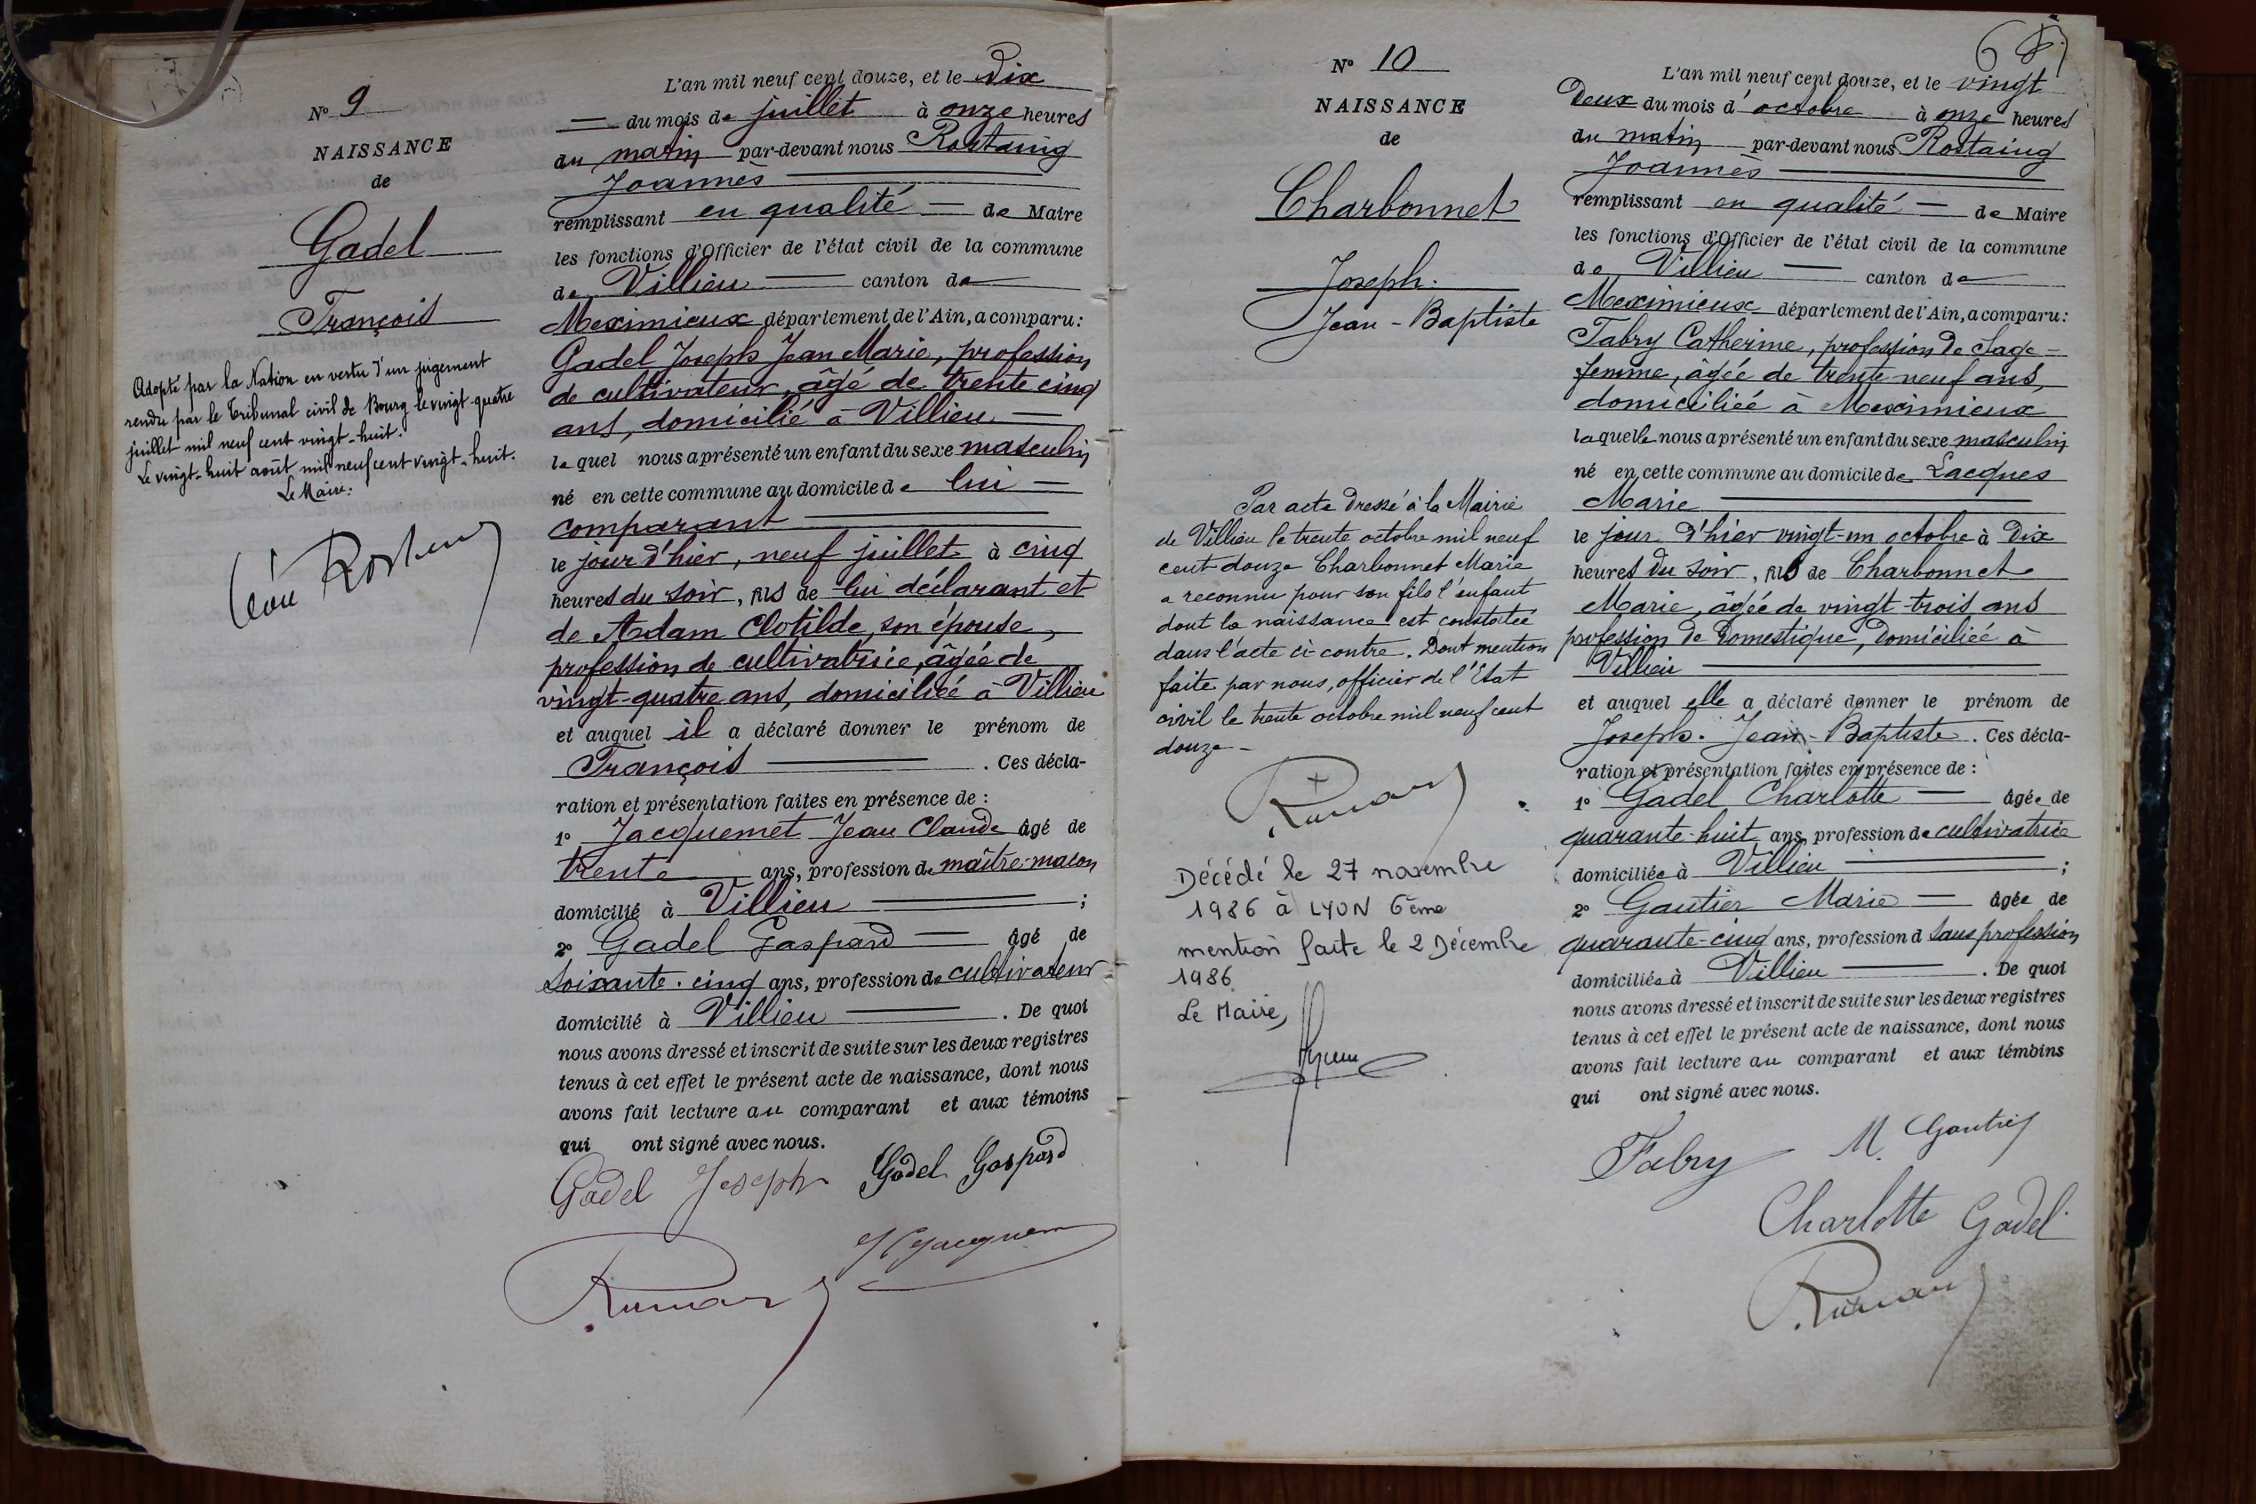 N° 9
NAISSANCE
de
Gadel
François
Adopté par la Nation en vertu d'un jugement
rendu par le Tribunal civil de Bourg le vingt-quatre
juillet mil neuf cent vingt-huit.
Le vingt-huit août mil neuf cent vingt-huit.
Le Maire:
L'an mil neuf cent douze, et le dix
— du mois de juillet à onze heures
du matin par-devant nous Rostaing
Joannès
remplissant en qualité — de Maire
les fonctions d'Officier de l'état civil de la commune
de Villieu — canton de
Meximieux département de l'Ain, a comparu:
Gadel Joseph Jean Marie, profession
de cultivateur, âgé de trente cinq
ans, domicilié à Villieu —
lequel nous a présenté un enfant du sexe masculin
né en cette commune au domicile de lui —
comparant
le jour d'hier, neuf juillet à cinq
heures du soir, fils de lui déclarant et
de Adam Clotilde, son épouse,
profession de cultivatrice, âgée de
vingt-quatre ans, domiciliée à Villieu
et auquel il a déclaré donner le prénom de
François — . Ces décla-
ration et présentation faites en présence de :
1° Jacquemet Jean Claude âgé de
trente ans, profession de maître-maçon
domicilié à Villieu — ;
2° Gadel Gaspard — âgé de
soixante-cinq ans, profession de cultivateur
domicilié à Villieu — . De quoi
nous avons dressé et inscrit de suite sur les deux registres
tenus à cet effet le présent acte de naissance, dont nous
avons fait lecture au comparant et aux témoins
qui ont signé avec nous.
Gadel Joseph Gadel Gaspard
N° 10
NAISSANCE
de
Charbonnet
Joseph.
Jean-Baptiste
Par acte dressé à la Mairie
de Villieu le trente octobre mil neuf
cent douze Charbonnet Marie
a reconnu pour son fils l'enfant
dont la naissance est constatée
dans l'acte ci-contre. Dont mention
faite par nous, officier de l'Etat
civil le trente octobre mil neuf cent
douze -
Décédé le 27 novembre
1986 à LYON 6ème
mention faite le 2 Décembre
1986
Le Maire,
L'an mil neuf cent douze, et le vingt
deux du mois d'octobre à onze heures
du matin par-devant nous Rostaing
Joannès
remplissant en qualité — de Maire
les fonctions d'Officier de l'état civil de la commune
de Villieu — canton de
Meximieux département de l'Ain, a comparu:
Fabry Catherine, profession de Sage-
femme, âgée de trente neuf ans,
domiciliée à Meximieux
laquelle nous a présenté un enfant du sexe masculin
né en cette commune au domicile de Lacques
Marie
le jour d'hier vingt-un octobre à dix
heures du soir, fils de Charbonnet
Marie, âgée de vingt-trois ans
profession de domestique, domiciliée à
Villieu
et auquel elle a déclaré donner le prénom de
Joseph. Jean-Baptiste . Ces décla-
ration et présentation faites en présence de :
1° Gadel Charlotte — âgée de
quarante-huit ans, profession de cultivatrice
domiciliée à Villieu — ;
2° Gautier Marie — âgée de
quarante-cinq ans, profession d sans profession
domiciliée à Villieu — . De quoi
nous avons dressé et inscrit de suite sur les deux registres
tenus à cet effet le présent acte de naissance, dont nous
avons fait lecture au comparant et aux témoins
qui ont signé avec nous.
Fabry M. Gautier
Charlotte Gadel